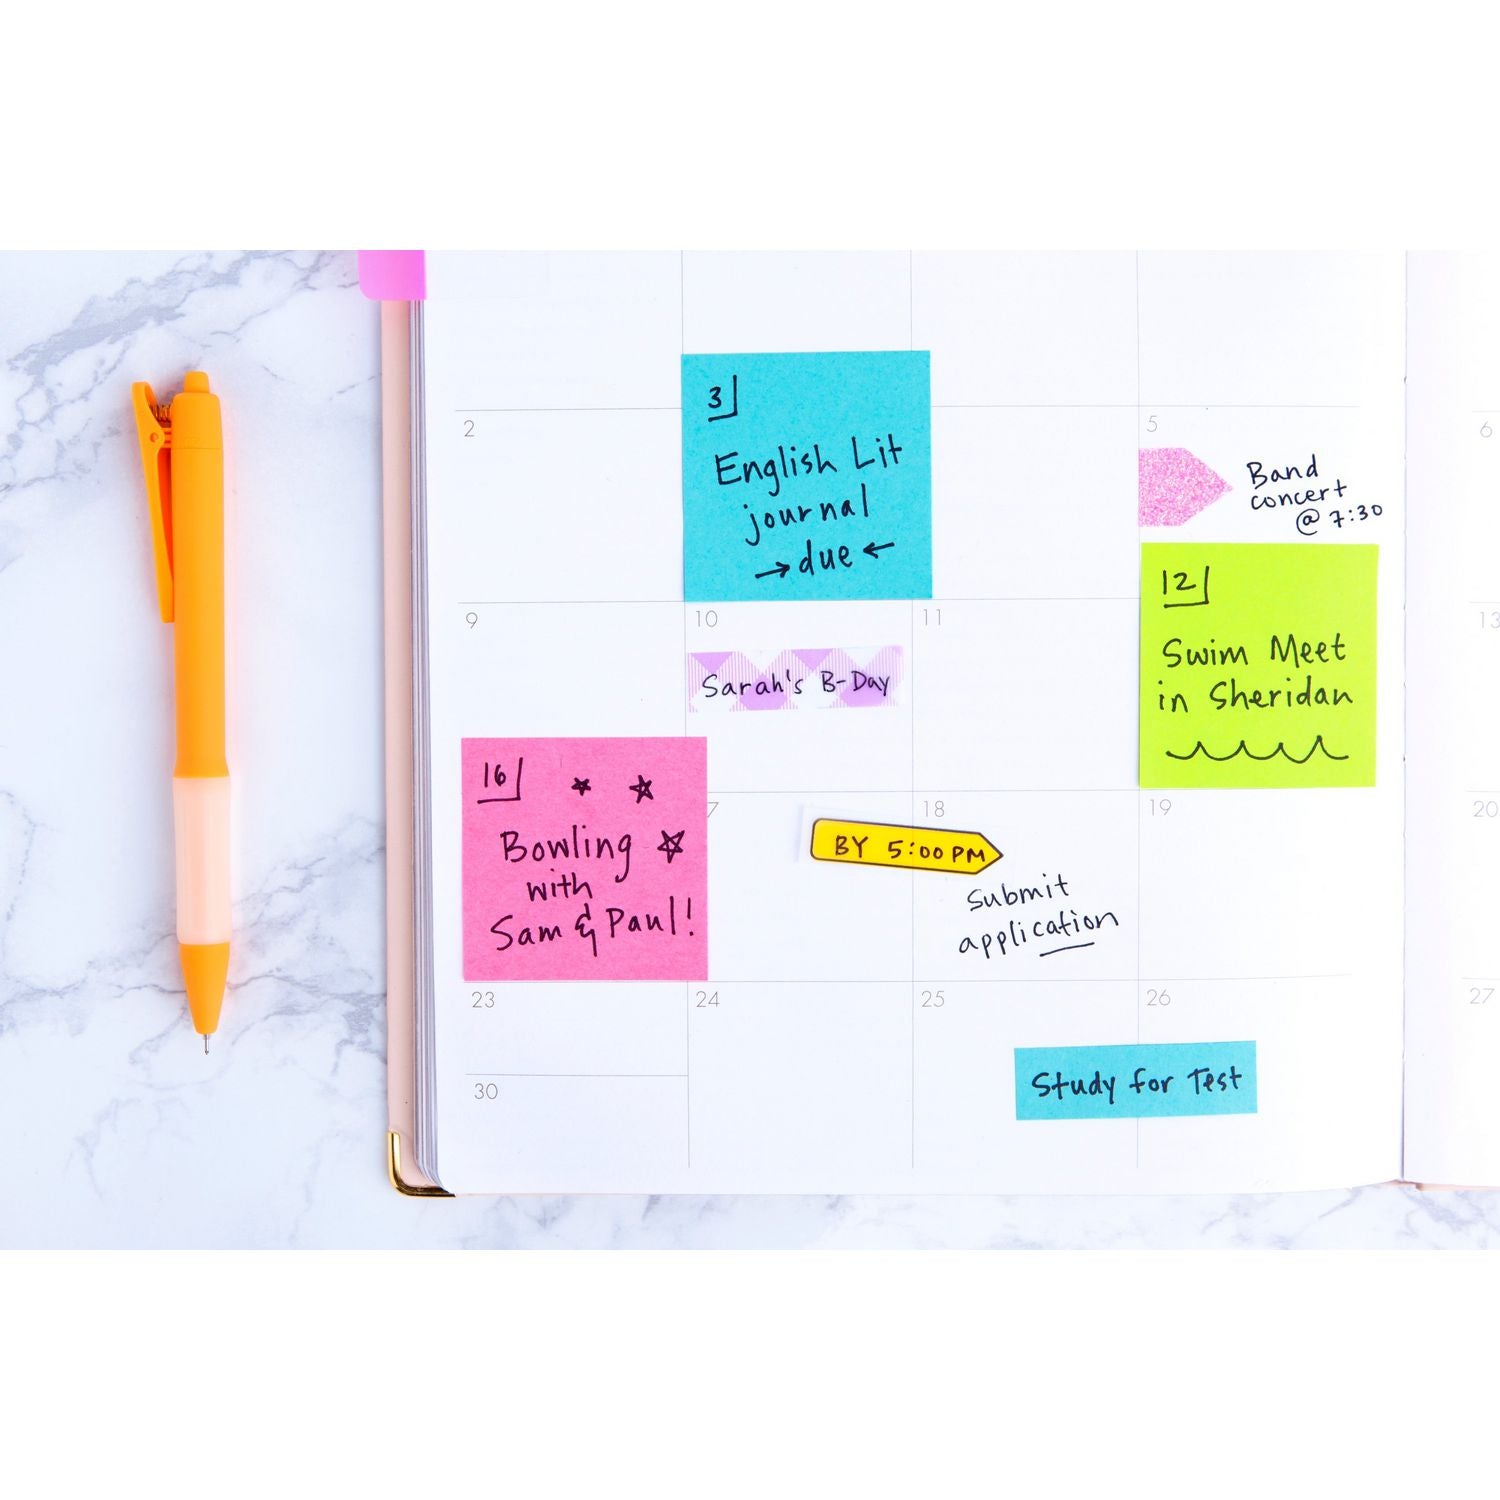 2
3
English Lit
journal
→ due ←
5
Band
concert
@ 7:30
6
9
10
Sarah's B-Day
11
12
Swim Meet
in Sheridan
13
16
Bowling
with
Sam & Paul!
7
BY 5:00 PM
18
Submit
application
19
20
23
24
25
26
Study for Test
27
30